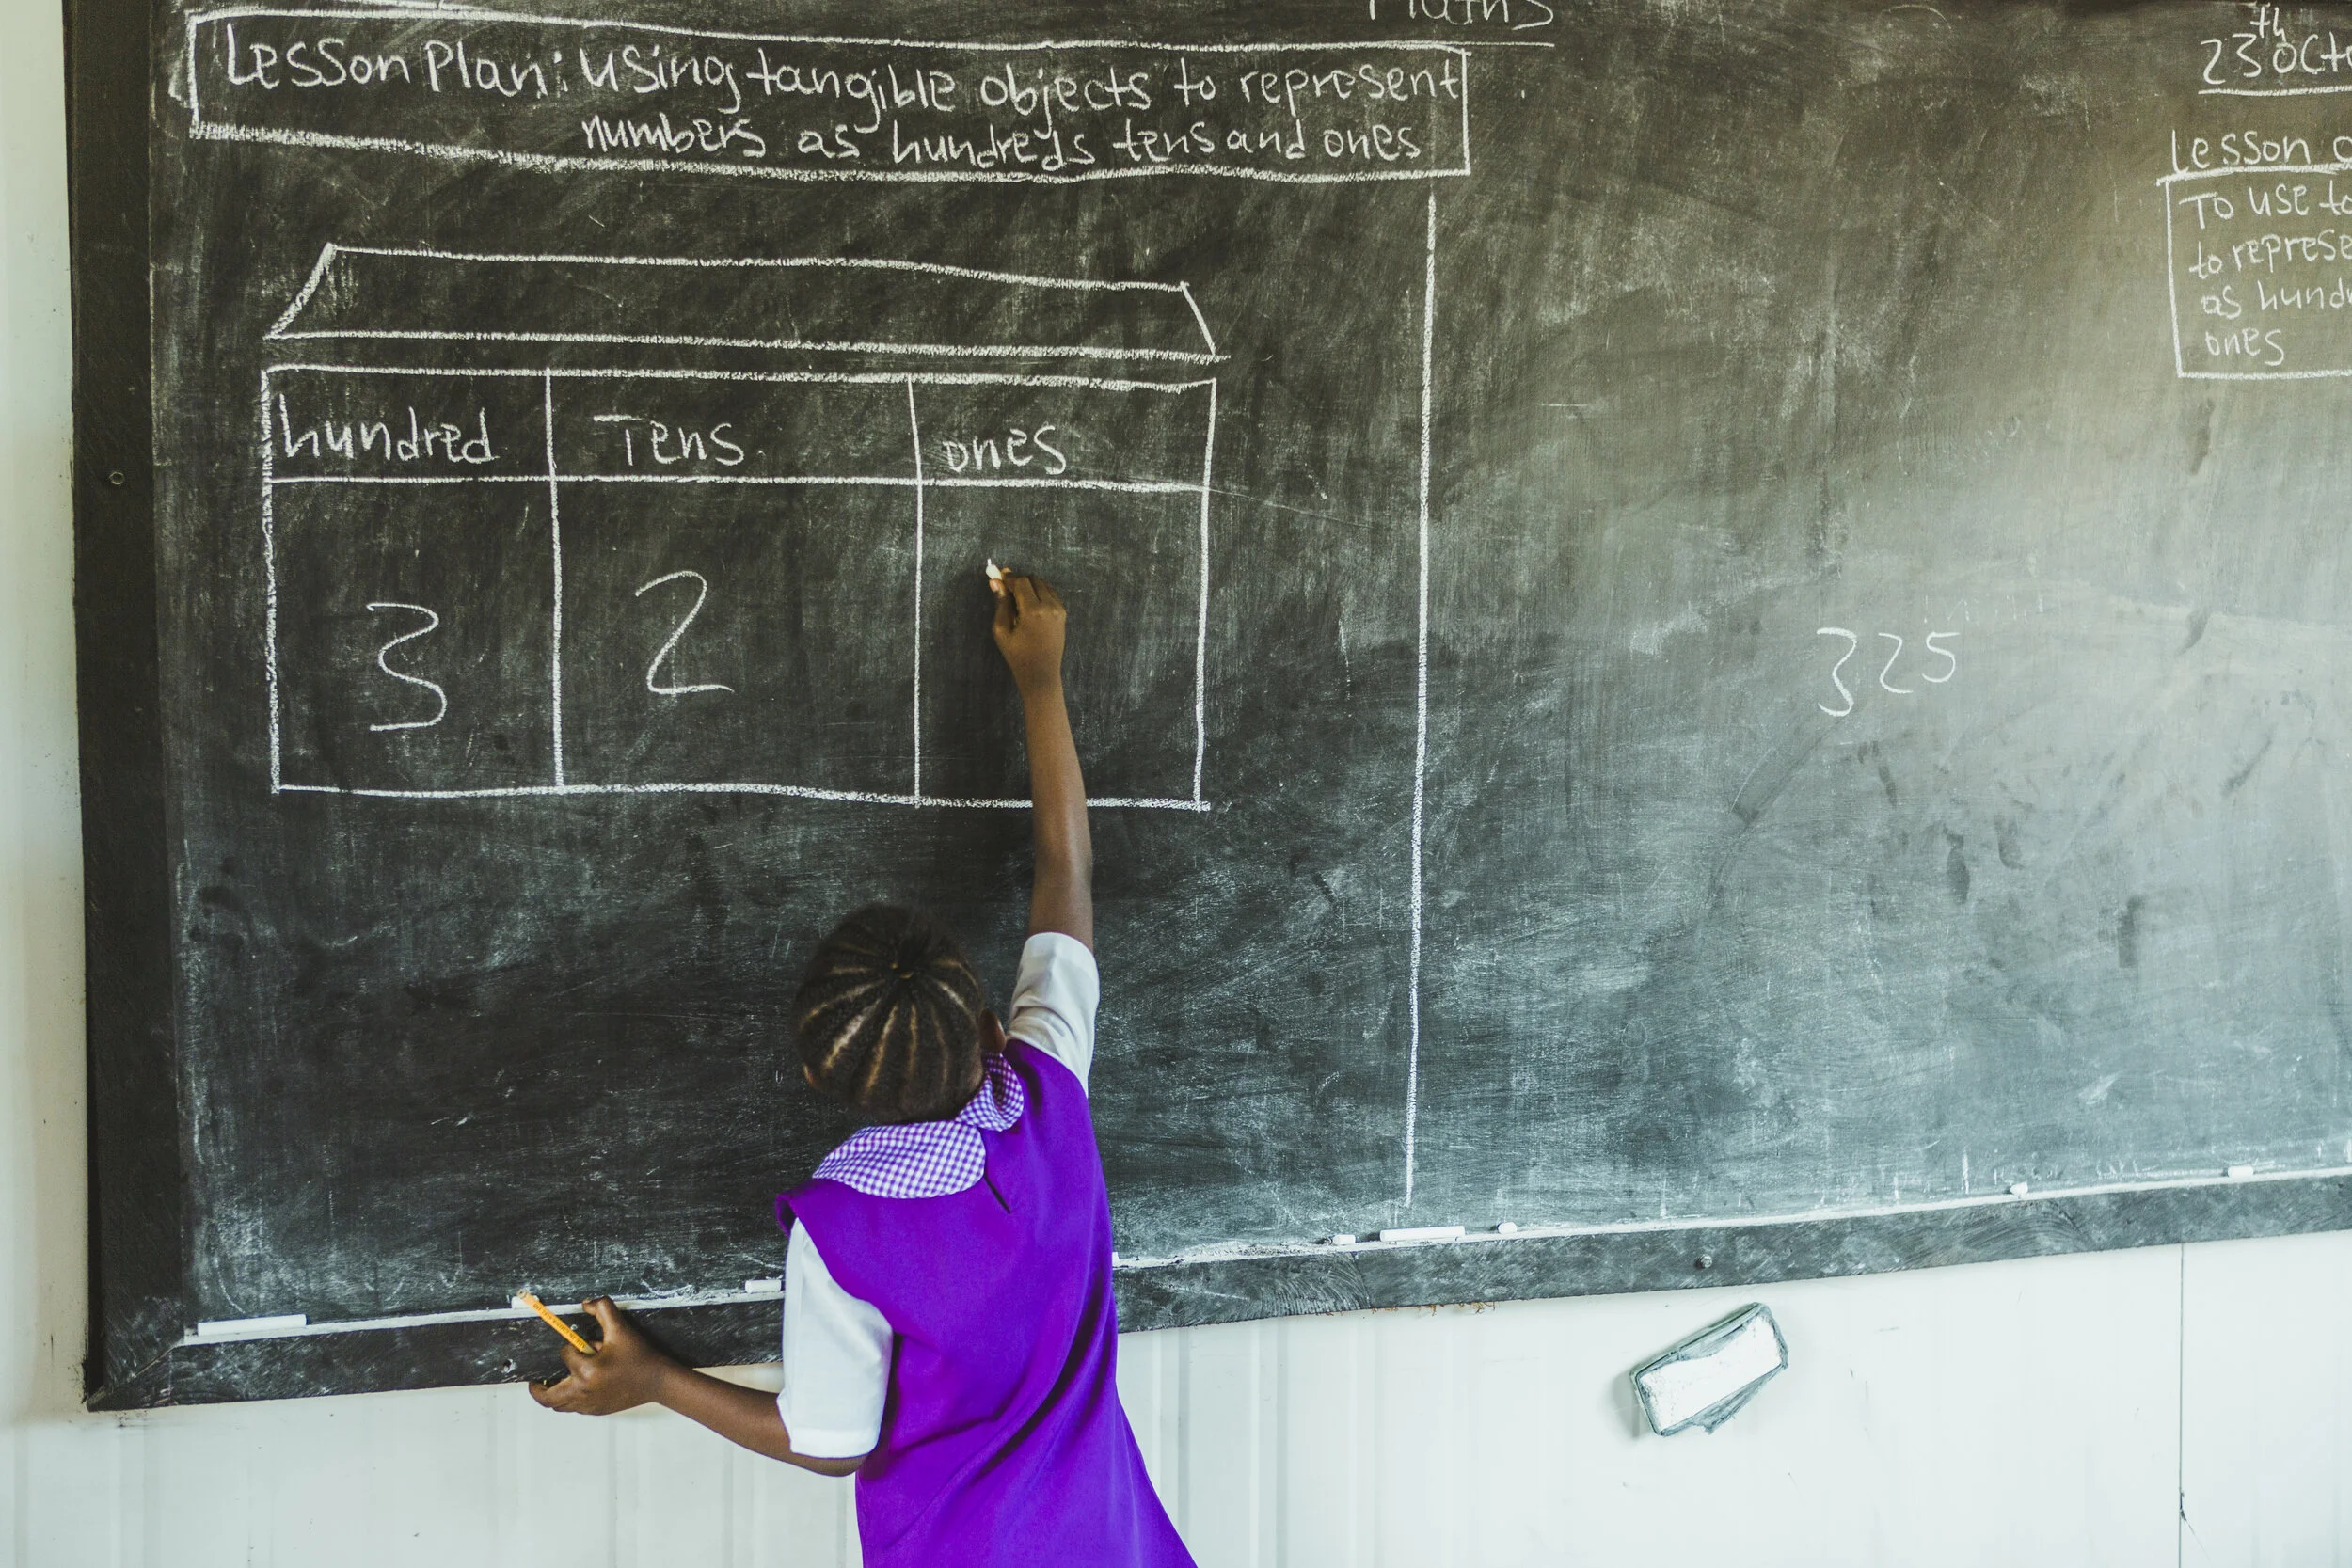 Maths
Lesson Plan: Using tangible objects to represent
numbers as hundreds tens and ones
hundred Tens ones
3 2
325
23th Oct
Lesson
To use
to
as
ones